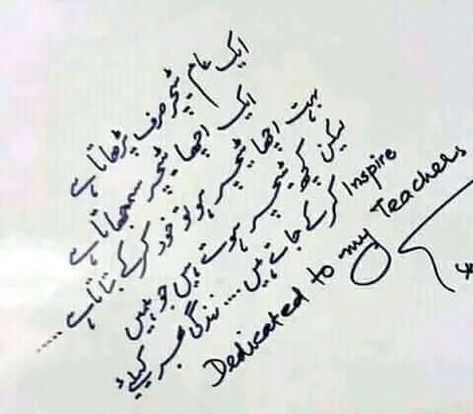 ایک عام ٹیچر صرف پڑھاتا ہے
ایک اچھا ٹیچر سمجھاتا ہے
بہت اچھا ٹیچر ہو تو خود کرکے بتاتا ہے .....
لیکن کچھ ٹیچر ہوتے ہیں جو ہمیں
Inspire کرکے جاتے ہیں .... زندگی بھر کیلئے
Dedicated to my Teachers